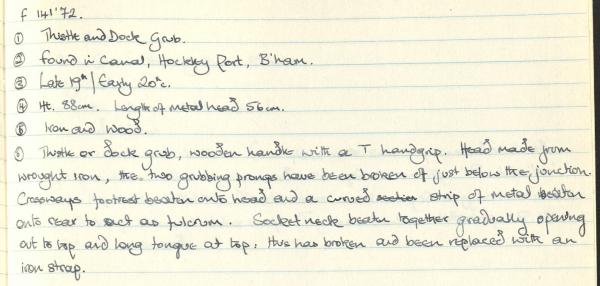 F 141'72.
① Thistle and Dock Grub.
② Found in Canal, Hockley Port, B'ham.
③ Late 19th / Early 20thc.
④ Ht. 88cm. Length of metal head 56cm.
⑤ Iron and Wood.
⑥ Thistle or dock grub, wooden handle with a T handgrip. Head made from
wrought iron, the two grubbing prongs have been broken of just below the junction.
Crossways footrest beaten onto head and a curved section strip of metal beaten
onto rear to act as fulcrum. Socket neck beaten together gradually opening
out to top and long tongue at top, this has broken and been replaced with an
iron strap.